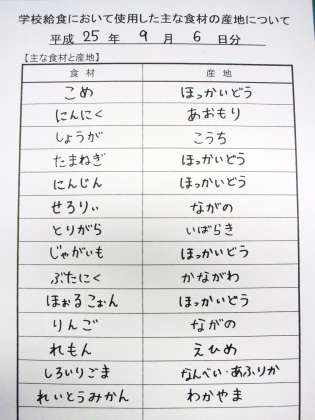 学校給食において使用した主な食材の産地について
平成 25 年 9 月 6 日分
【主な食材と産地】
食材 産地
こめ ほっかいどう
にんにく あおもり
しょうが こうち
たまねぎ ほっかいどう
にんじん ほっかいどう
せろりぃ ながの
とりがら いばらき
じゃがいも ほっかいどう
ぶたにく かながわ
ほぉるこぉん ほっかいどう
りんご ながの
れもん えひめ
しろいりごま なんべい・あふりか
れいとうみかん わかやま